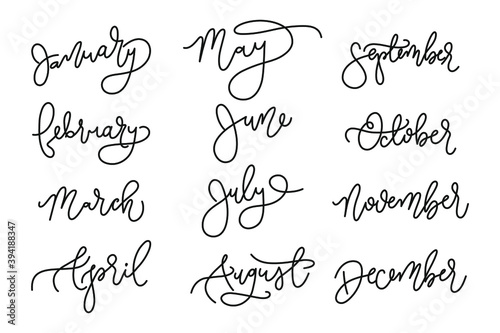 January
February
March
April
May
June
July
August
September
October
November
December
Adobe Stock | #394188347